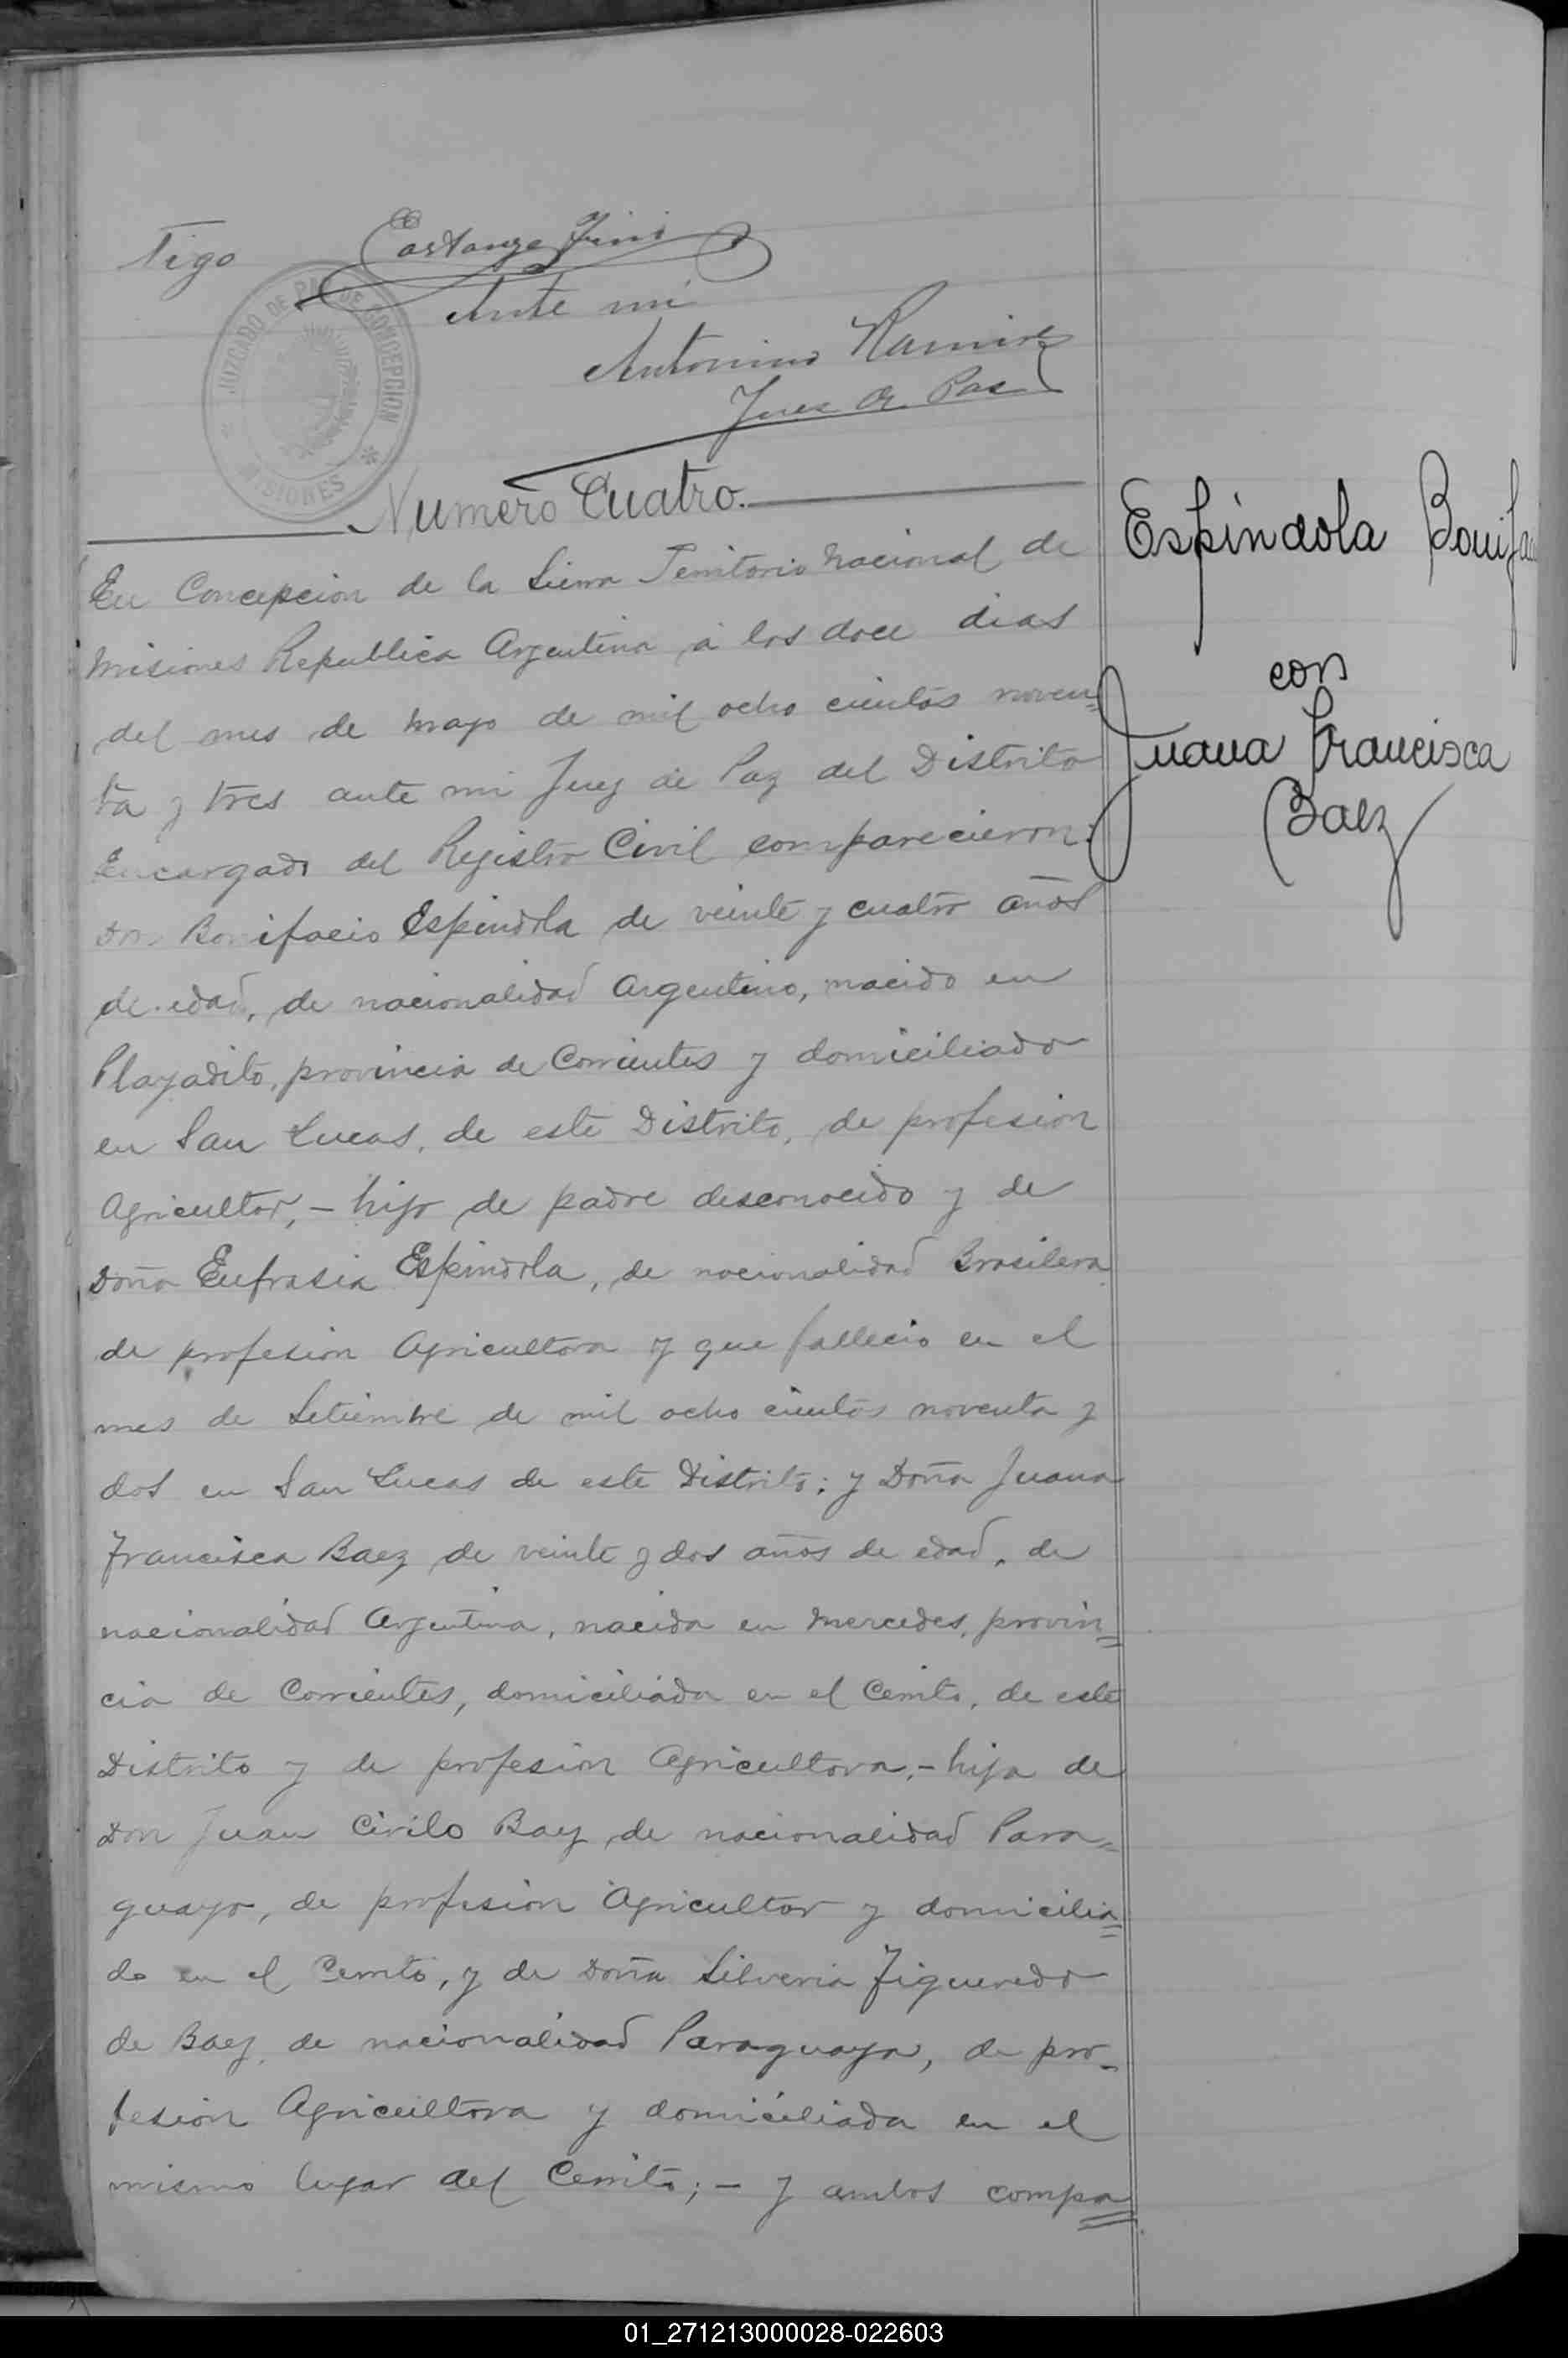 Tigo
Ante mi
Antonino Ramirez
Juez de Paz
JUZGADO DE PAZ DE CONCEPCION
MISIONES
Numero Cuatro.
En Concepcion de la Sierra Territorio Nacional de
Misiones Republica Argentina á los doce dias
del mes de Mayo de mil ocho cientos noven=
ta y tres ante mi Juez de Paz del Distrito
Encargado del Registro Civil comparecieron:
Don Bonifacio Espindola de veinte y cuatro años
de edad, de nacionalidad Argentino, nacido en
Playadito, provincia de Corrientes y domiciliado
en San Lucas, de este Distrito, de profesion
Agricultor, - hijo de padre desconocido y de
Doña Eufrasia Espindola, de nacionalidad Brasilera
de profesion Agricultora y que fallecio en el
mes de Setiembre de mil ocho cientos noventa y
dos en San Lucas de este Distrito; y Doña Juana
Francisca Baez de veinte y dos años de edad, de
nacionalidad Argentina, nacida en Mercedes, provin=
cia de Corrientes, domiciliada en el Cerrito, de este
Distrito y de profesion Agricultora, - hija de
Don Juan Cirilo Baez de nacionalidad Para=
guayo, de profesion Agricultor y domicilia=
do en el Cerrito, y de Doña Silveria Figueredo
de Baez, de nacionalidad Paraguaya, de pro=
fesion Agricultora y domiciliada en el
mismo lugar del Cerrito; - y ambos compa=
Espíndola
con
Juana Francisca
Baez
01_271213000028-022603